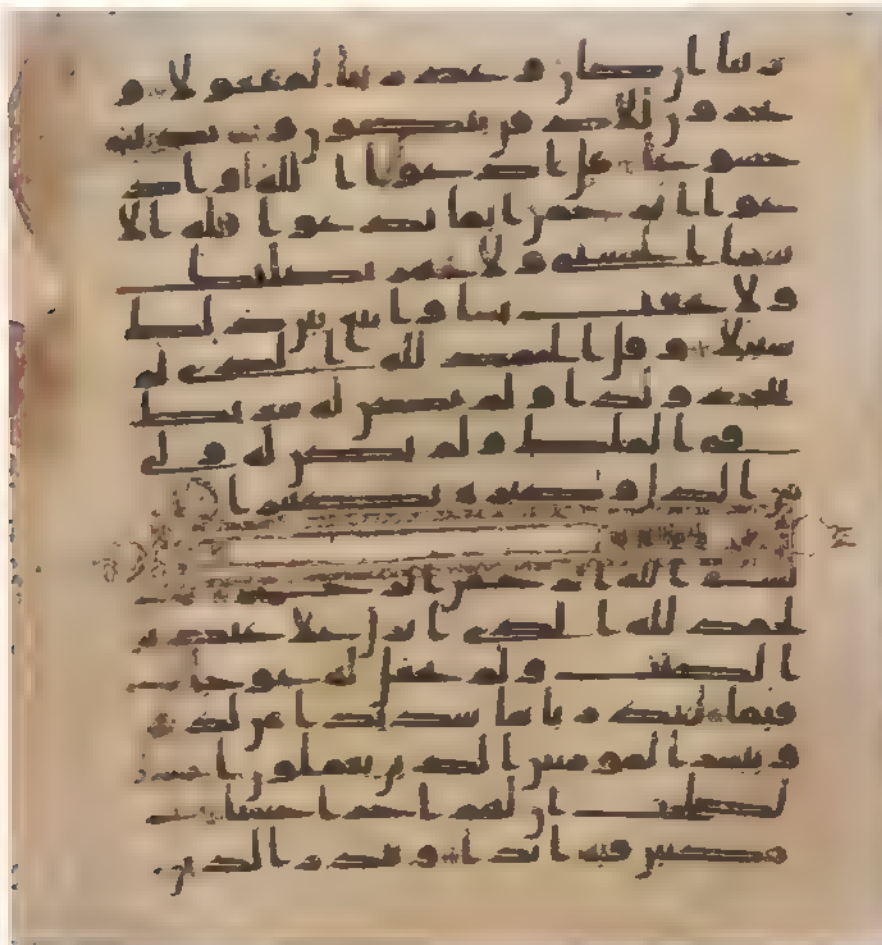 ربنا ان كان وعد ربنا لمفعولا و
يخرون للاذقن يبكون ويزيدهم
خشوعا قل ادعوا الله او اد
عوا الرحمن ايما تدعوا فله الا
سما الحسنى ولا تجهر بصلتك
ولا تخفت بها وابتغ بين ذلك
سبيلا وقل الحمد لله الذى لم
يتخذ ولدا ولم يكن له شريك
فى الملك ولم يكن له ولى
من الذل وكبره تكبيرا
بسم الله الرحمن الرحيم
الحمد لله الذى انزل على عبده
الكتب ولم يجعل له عوجا
قيما لينذر باسا شديدا من لدنه
ويبشر المومنين الذين يعملون
الصلحت ان لهم اجرا حسنا
مكثين فيه ابدا وينذر الذين